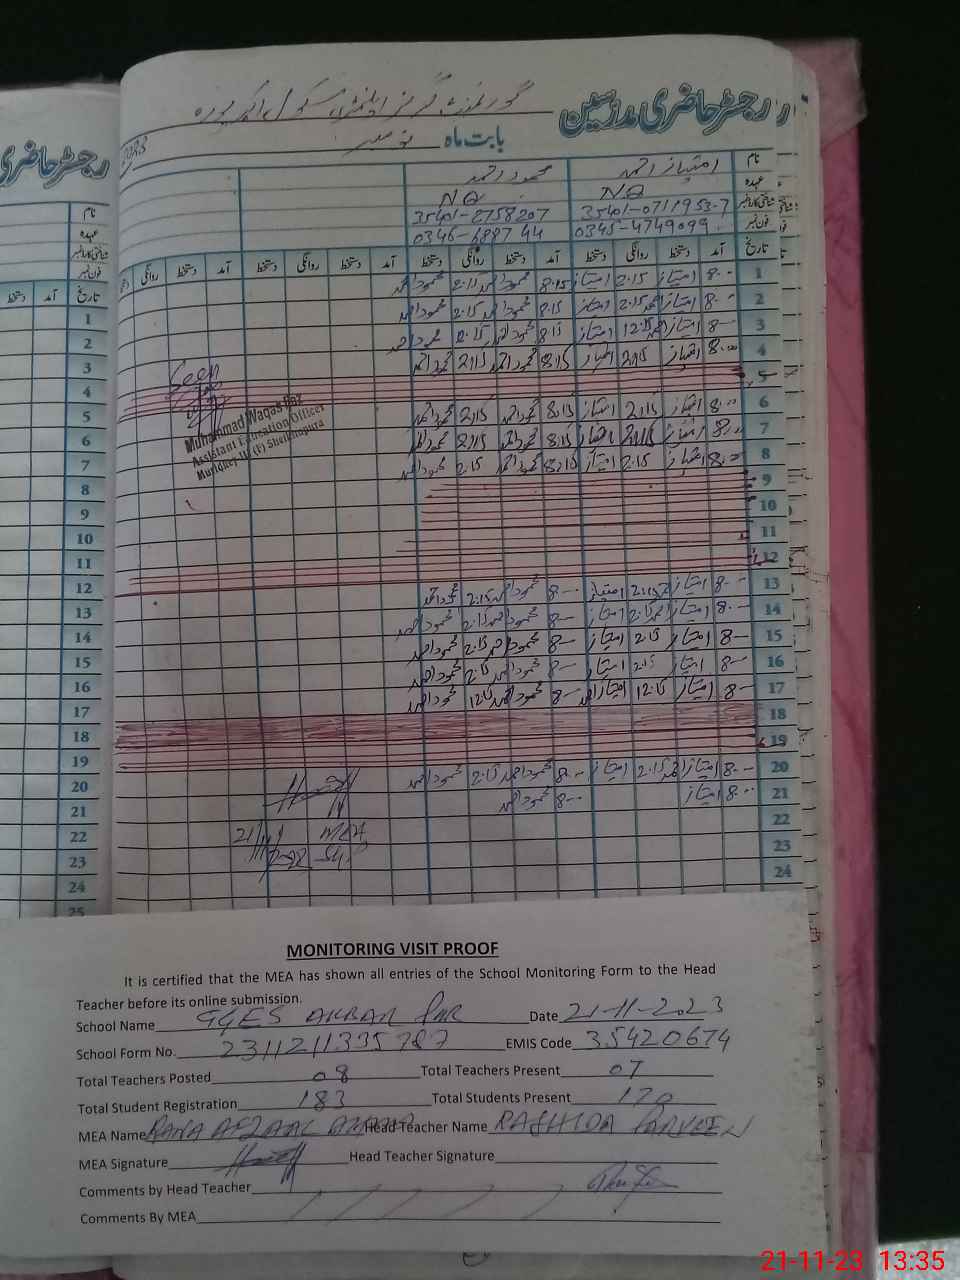 رجسٹر حاضری مدرسین
گورنمنٹ گرلز ایلیمنٹری سکول اکبر پورہ
بابت ماہ نومبر
نام امتیاز احمد محمود احمد
عہدہ NQ NQ
شناختی کارڈ نمبر 35401-0711953-7 35401-2758207
فون نمبر 0345-4749099 0346-688744
تاریخ آمد دستخط روانگی دستخط آمد دستخط روانگی دستخط آمد دستخط روانگی دستخط آمد دستخط روانگی
1 8.00 امتیاز 2.15 امتیاز 8.15 محمود احمد 2.15 محمود احمد
2 8.00 امتیاز 2.15 امتیاز 8.15 محمود احمد 2.15 محمود احمد
3 8.00 امتیاز 12.15 امتیاز 8.15 محمود احمد 12.15 محمود احمد
4 8.00 امتیاز 2.15 امتیاز 8.15 محمود احمد 2.15 محمود احمد
5
6 8.00 امتیاز 2.15 امتیاز 8.15 محمود احمد 2.15 محمود احمد
7 8.00 امتیاز 2.15 امتیاز 8.15 محمود احمد 2.15 محمود احمد
8 8.00 امتیاز 2.15 امتیاز 8.15 محمود احمد 2.15 محمود احمد
9
10
11
12
13 8.00 امتیاز 2.15 امتیاز 8.00 محمود احمد 2.15 محمود احمد
14 8.00 امتیاز 2.15 امتیاز 8.00 محمود احمد 2.15 محمود احمد
15 8.00 امتیاز 2.15 امتیاز 8.00 محمود احمد 2.15 محمود احمد
16 8.00 امتیاز 2.15 امتیاز 8.00 محمود احمد 2.15 محمود احمد
17 8.00 امتیاز 12.15 امتیاز 8.00 محمود احمد 12.15 محمود احمد
18
19
20 8.00 امتیاز 2.15 امتیاز 8.00 محمود احمد 2.15 محمود احمد
21 8.00 امتیاز 8.00 محمود احمد
22
23
24
Seen
Muhammad Waqas Riaz
Assistant Education Officer
Muridkey II (F) Sheikhupura
21/11 MEA
رجسٹر حاضری
نام
عہدہ
شناختی کارڈ نمبر
فون نمبر
تاریخ آمد دستخط
1
2
3
4
5
6
7
8
9
10
11
12
13
14
15
16
17
18
19
20
21
22
23
24
25
MONITORING VISIT PROOF
It is certified that the MEA has shown all entries of the School Monitoring Form to the Head
Teacher before its online submission.
School Name GGES AKBAR PUR Date 21-11-2023
School Form No. 2311211335787 EMIS Code 35420674
Total Teachers Posted 08 Total Teachers Present 07
Total Student Registration 183 Total Students Present 170
MEA Name RANA AFZAAL AHMAD Head Teacher Name RASHIDA PARVEEN
MEA Signature Head Teacher Signature
Comments by Head Teacher
Comments By MEA
21-11-23 13:35